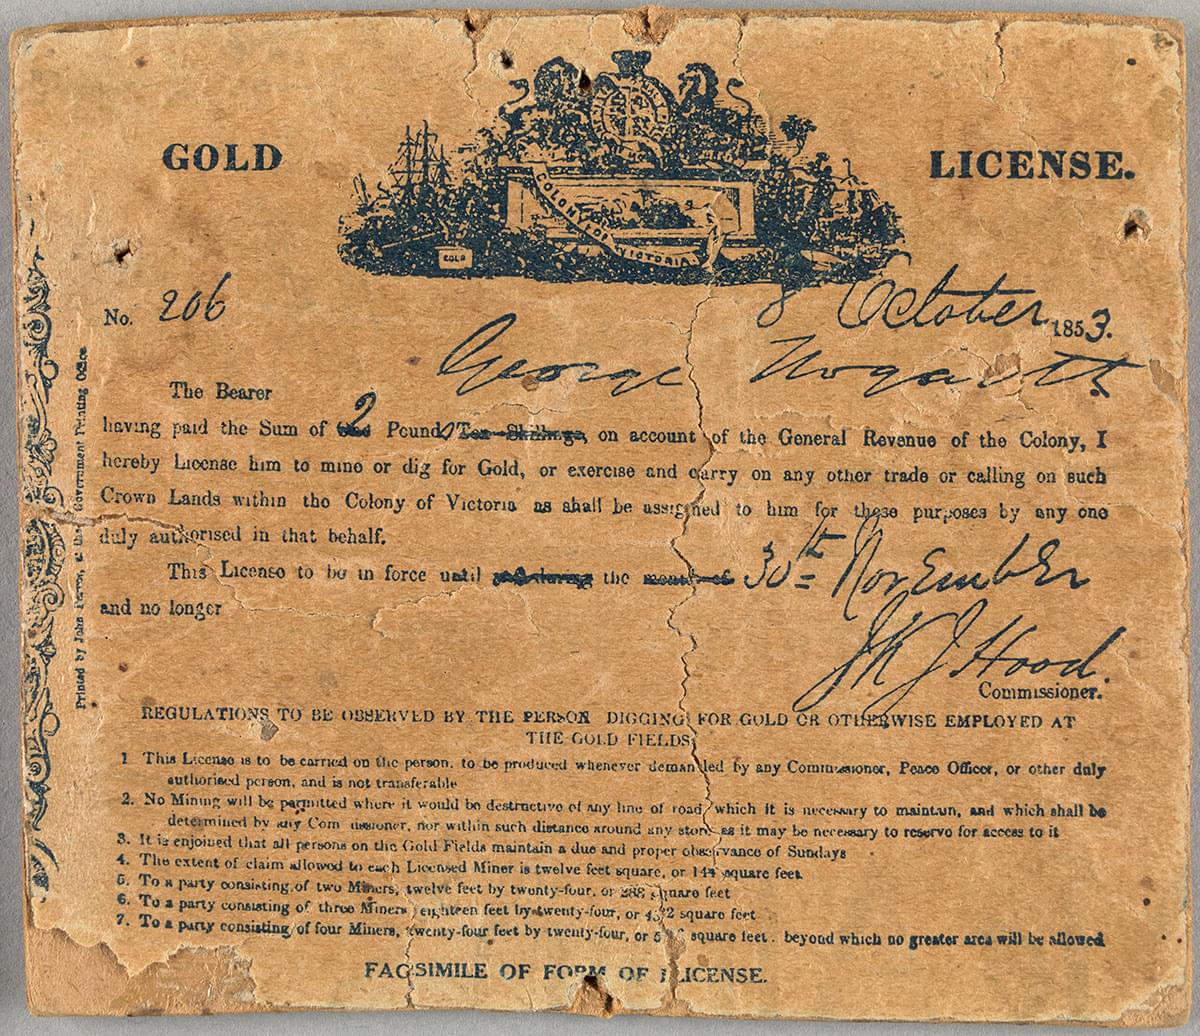 GOLD LICENSE.
COLONY OF VICTORIA
GOLD
No. 206
8 October 1853.
George Hogarth
The Bearer
having paid the Sum of 2 Pounds Ten Shillings, on account of the General Revenue of the Colony, I
hereby License him to mine or dig for Gold, or exercise and carry on any other trade or calling on such
Crown Lands within the Colony of Victoria as shall be assigned to him for these purposes by any one
duly authorised in that behalf.
This License to be in force until and during the month of 30th November
and no longer
JKJ Hood.
Commissioner.
REGULATIONS TO BE OBSERVED BY THE PERSON DIGGING FOR GOLD OR OTHERWISE EMPLOYED AT
THE GOLD FIELDS
1 This License is to be carried on the person, to be produced whenever demanded by any Commissioner, Peace Officer, or other duly
authorised person, and is not transferable
2. No Mining will be permitted where it would be destructive of any line of road, which it is necessary to maintain, and which shall be
determined by any Commissioner, nor within such distance around any store as it may be necessary to reserve for access to it
3. It is enjoined that all persons on the Gold Fields maintain a due and proper observance of Sundays
4. The extent of claim allowed to each Licensed Miner is twelve feet square, or 144 square feet
5. To a party consisting of two Miners, twelve feet by twenty-four, or 288 square feet
6. To a party consisting of three Miners, eighteen feet by twenty-four, or 432 square feet
7. To a party consisting of four Miners, twenty-four feet by twenty-four, or square feet. beyond which no greater area will be allowed
FACSIMILE OF FORM OF LICENSE.
Printed by John Ferres, at the Government Printing Office